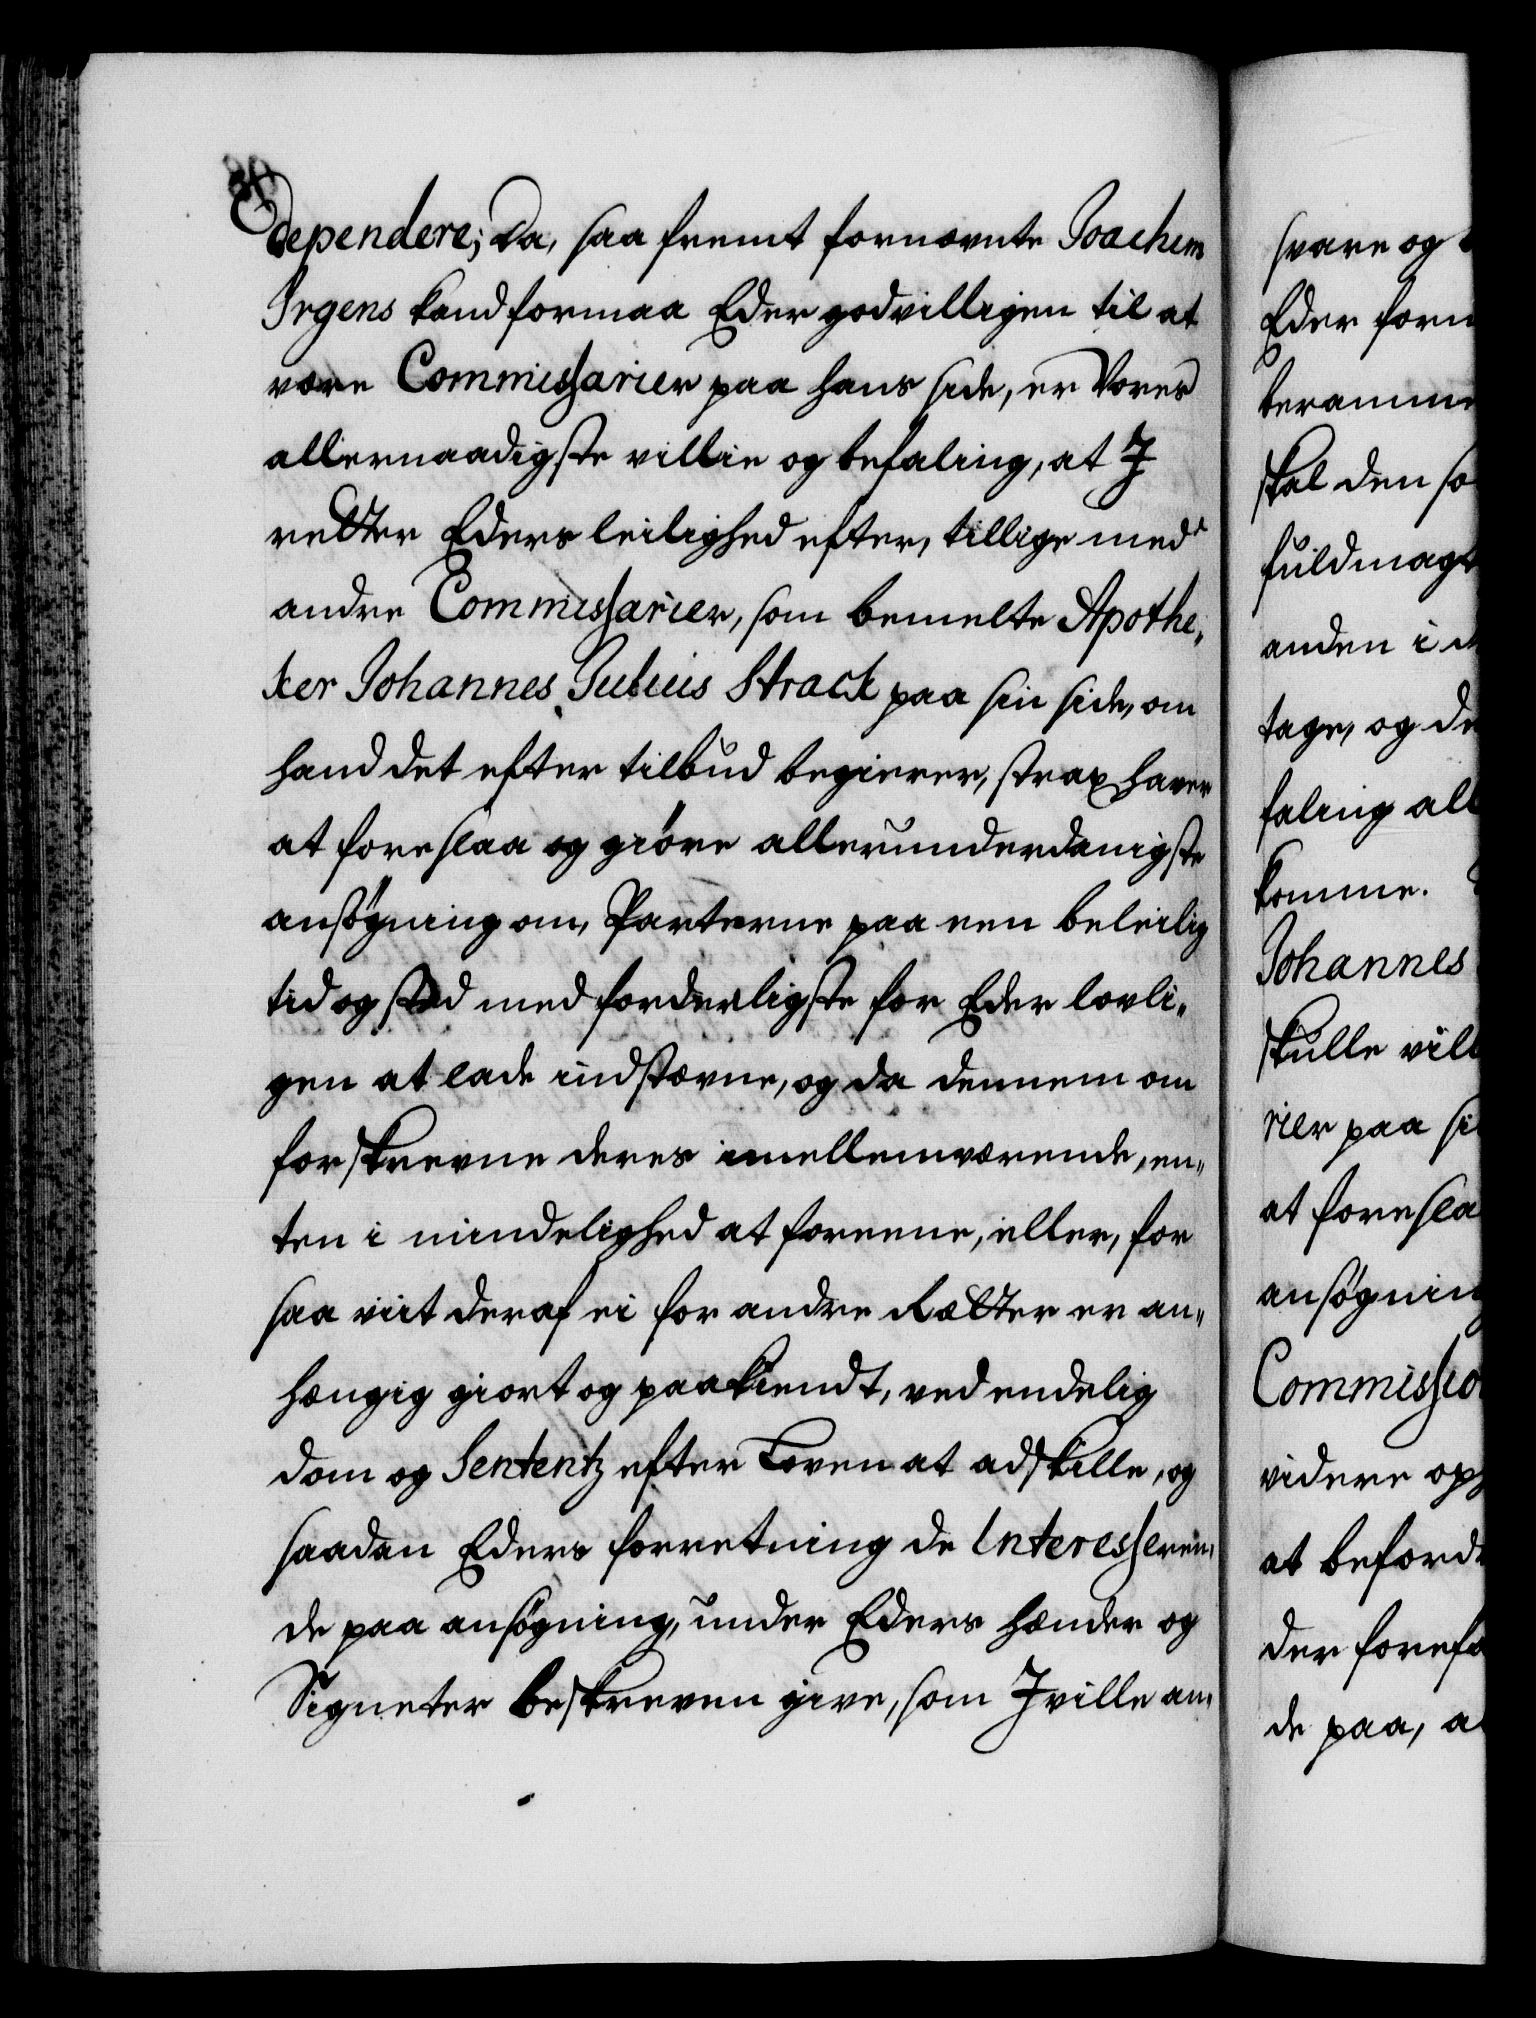 dependere; Da, saa fremt fornævnte Joachem
Irgens kand formaa Eder godvilligen til at
være Commissarier paa hans side, er Vores
allernaadigste villie og befaling, at I
retter Eders leilighed efter, tillige med
andre Commissarier, som bemelte Apothe„
ker Johannes Julius Strack paa sin side, om
hand det efter tilbud begierer, strax haver
at foreslaa og giöre allerunderdanigste
ansögning om, Parterne paa een beleilig
tid og sted med forderligste for Eder lovli„
gen at lade indstævne, og da dennem om
forskrevne deres imellemværende, en„
ten i mindelighed at foreene, eller, for
saa vit deraf ei for andre Rætter er an„
hængig giort og paakiendt, ved endelig
dom og Sententz efter Loven at adskille, og
saadan Eders forretning de Interesseren„
de paa ansögning, under Eders hænder og
Signeter beskreven give, som I ville an„
svare og
Eder forn
beramme
skal den so
fuldmagt
anden i d
tage, og de
faling all
komme.
Johannes
skulle vill
rier paa si
at foresla
ansögning
Commissio
videre op
at beford
der forefa
de paa, a